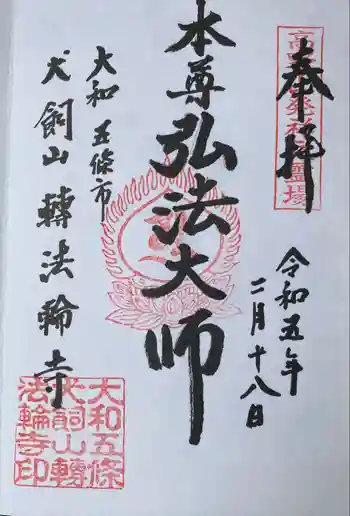 奉拝
令和五年
二月十八日
本尊
弘法大師
大和五條市
犬飼山轉法輪寺
大和五條
犬飼山轉
法輪寺印